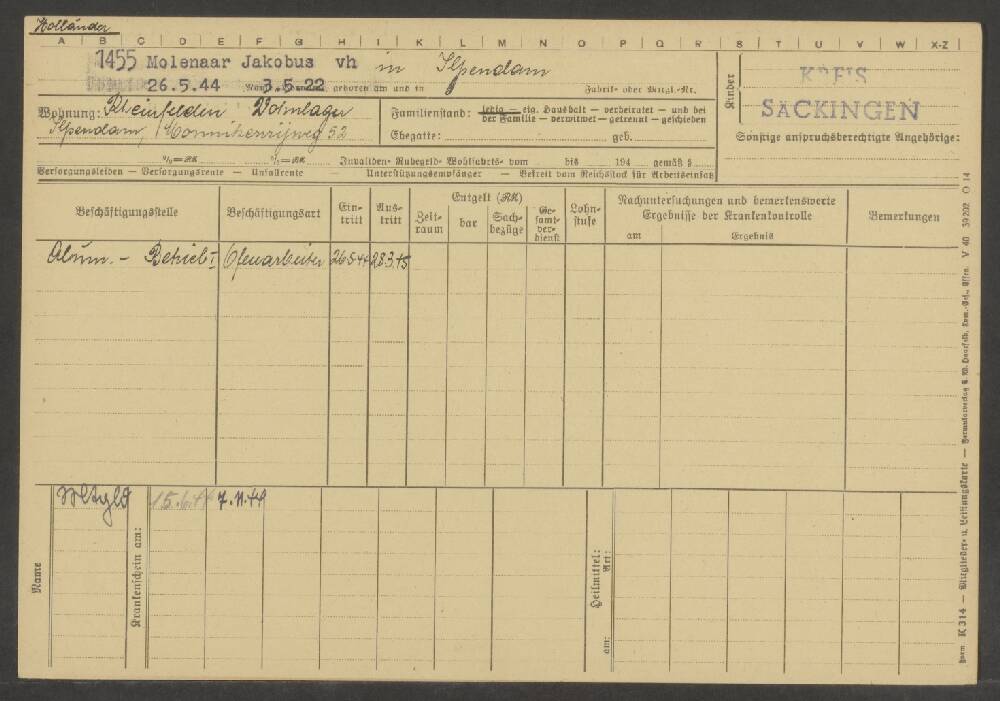 Holländer
A B C D E F G H I K L M N O P Q R S T U V W X-Z
1455 Molenaar Jakobus vh in Ilpendam
26.5.44 3.5.22 geboren am und in Fabrik- oder Mitgl.-Nr.
Kinder
KREIS
SÄCKINGEN
Wohnung: Rheinfelden Wohnlager
Ilpendam,
52
Familienstand: ledig — eig. Haushalt — verheiratet — und bei
der Familie — verwitwet — getrennt — geschieden
Ehegatte: geb.
Sonstige anspruchsberechtigte Angehörige:
%=RK %=RK Invaliden- Ruhegeld- Wohlfahrts- vom bis 194 gemäß §
Versorgungsleiden — Versorgungsrente — Unfallrente — Unterstützungsempfänger — Befreit vom Reichsstock für Arbeitseinsatz
Beschäftigungsstelle
Beschäftigungsart
Ein-
tritt
Aus-
tritt
Entgelt (RK)
Zeit-
raum
bar
Sach-
bezüge
Ge-
samt-
ver-
dienst
Lohn-
stufe
Nachuntersuchungen und bemerkenswerte
Ergebnisse der Krankenkontrolle
am Ergebnis
Bemerkungen
Alum. - Betrieb I Ofenarbeiter 26.5.44 28.3.45
Name
Mitgld
Krankenschein am:
15.6.44 7.11.44
Heilmittel:
Art:
am:
Form K 314 — Mitglieder- u. Leistungskarte —
V 40 39202 O 14